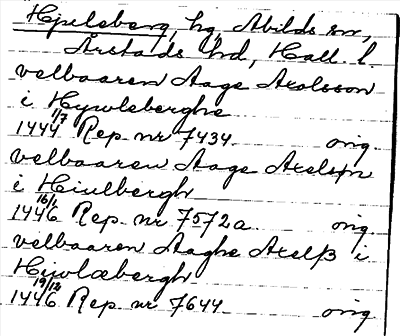 Hjulsberg, hg, Abilds sn,
Årstads hd, Hall. l.
velbaaren Aage Axelsson
i Hywlsberghe
1444 1/7 Rep. nr 7434 orig.
velbaaren Aage Axelsøn
i Hiulbergh
1446 16/1 Rep. nr 7572a orig.
velbaaren Aaghe Axelß i
Hiwlæbergh
1446 19/12 Rep. nr 7644 orig